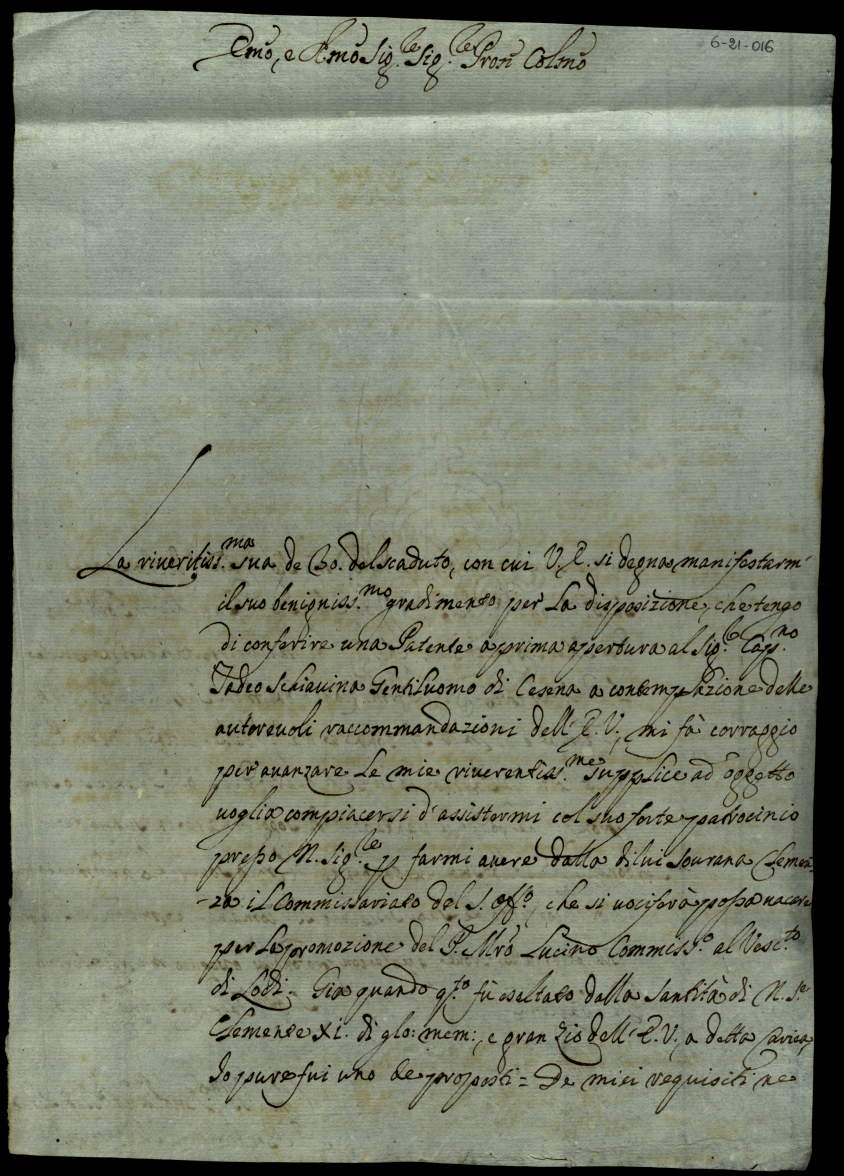 6-21-016
Emo, e Rmo Sig.re Sig.re Pron Colmo
La riveritiss.ma sua de 30. del scaduto, con cui V.E. si degna manifestarmi
il suo benigniss.mo gradimento per la disposizione, che tengo
di conferire una Patente a prima apertura al Sig.re Cap.no
Tadeo Schiavina Gentiluomo di Cesena a contemplazione delle
autorevoli raccommandazioni dell'E.V., mi fà corraggio
per avanzare le mie riverentiss.me supplice ad oggetto
voglia compiacersi d'assistermi col suo forte patrocinio
presso N. Sig.re p farmi avere dalla di lui sovrana Clemen
-za il Commissariato del S. Offo, che si vociferà possa vacare
per la promozione del P. Mro Lucino Commiss.o al Vesc.to
di Lodi. Già quando q.to fù esaltato dalla Santità di N. S.re
Clemente XI. di glo: mem:, e gran Zio dell'E.V., a detta Carica,
Io pure fui uno de proposti = De miei requisiti ne